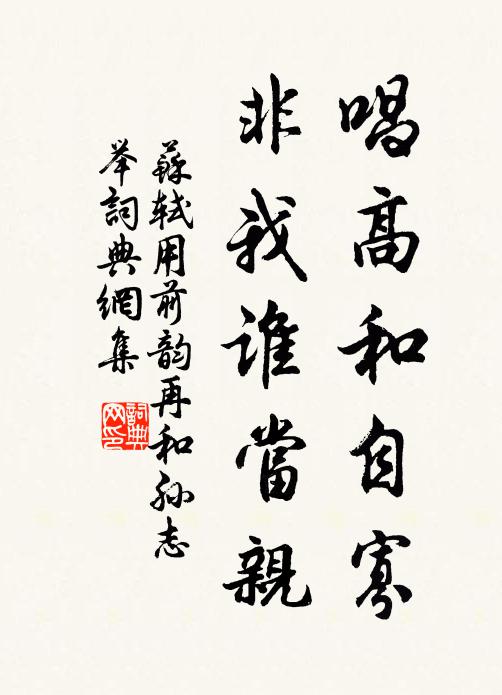 唱高和自寡
非我誰當親
蘇軾用前韵再和孫志
举詞典網集
詞典网印